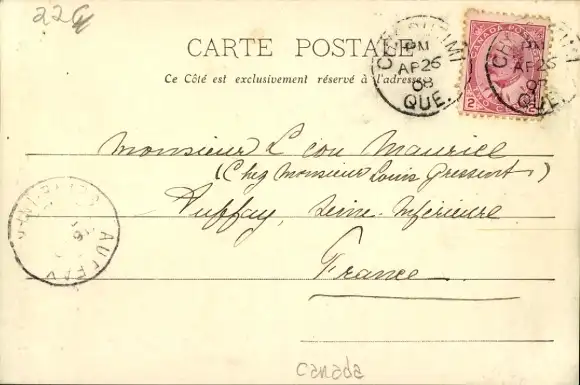 22
CARTE POSTALE
Ce Côté est exclusivement réservé à l'adresse
CHICOUTIMI
PM
AP 26
08
QUE.
CHICOUTIMI
PM
AP 26
08
QUE.
CANADA POSTAGE
2 2
TWO CENTS
Monsieur Léon Maurice
(Chez Monsieur Louis Gressent)
Auffay, Seine-Inférieure
France
AUFFAY
Canada